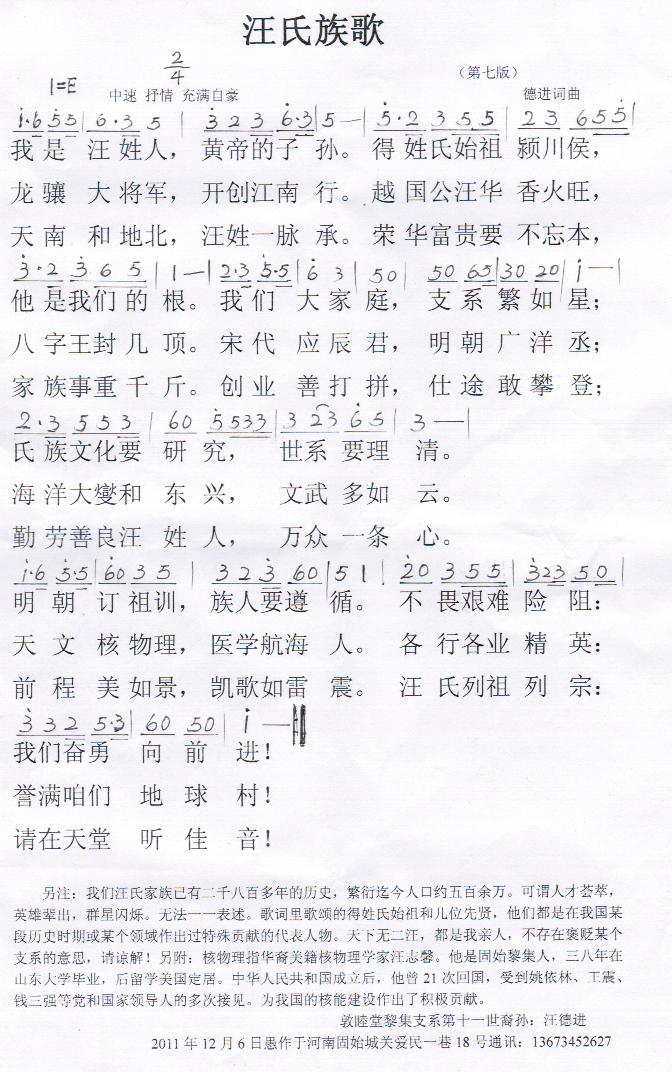 汪氏族歌
2/4
（第七版）
1=E
中速 抒情 充满自豪 德进词曲
我是 汪姓人，黄帝的子 孙。得姓氏始祖 颍川侯，
龙骧 大将军，开创江南 行。越国公汪华 香火旺，
天南 和地北，汪姓一脉 承。荣华富贵要 不忘本，
他是我们的 根。我们 大家庭，支系繁如星；
八字王封几 顶。宋代 应辰君，明朝广洋丞；
家族事重千 斤。创业 善打拼，仕途敢攀登；
氏族文化要 研究，世系要理 清。
海洋大燮和 东兴，文武多如 云。
勤劳善良汪 姓人，万众一条 心。
明朝 订祖训，族人要遵 循。不畏艰难 险阻：
天文 核物理，医学航海 人。各行各业 精英：
前程 美如景，凯歌如雷 震。汪氏列祖 列宗：
我们奋勇 向前 进！
誉满咱们 地球 村！
请在天堂 听佳 音！
另注：我们汪氏家族已有二千八百多年的历史，繁衍迄今人口约五百余万。可谓人才荟萃，
英雄辈出，群星闪烁。无法一一表述。歌词里歌颂的得姓氏始祖和几位先贤，他们都是在我国某
段历史时期或某个领域作出过特殊贡献的代表人物。天下无二汪，都是我亲人，不存在褒贬某个
支系的意思，请谅解！另附：核物理指华裔美籍核物理学家汪志馨。他是固始黎集人，三八年在
山东大学毕业，后留学美国定居。中华人民共和国成立后，他曾21次回国，受到姚依林、王震、
钱三强等党和国家领导人的多次接见。为我国的核能建设作出了积极贡献。
敦睦堂黎集支系第十一世裔孙：汪德进
2011年12月6日愚作于河南固始城关爱民一巷18号通讯：13673452627